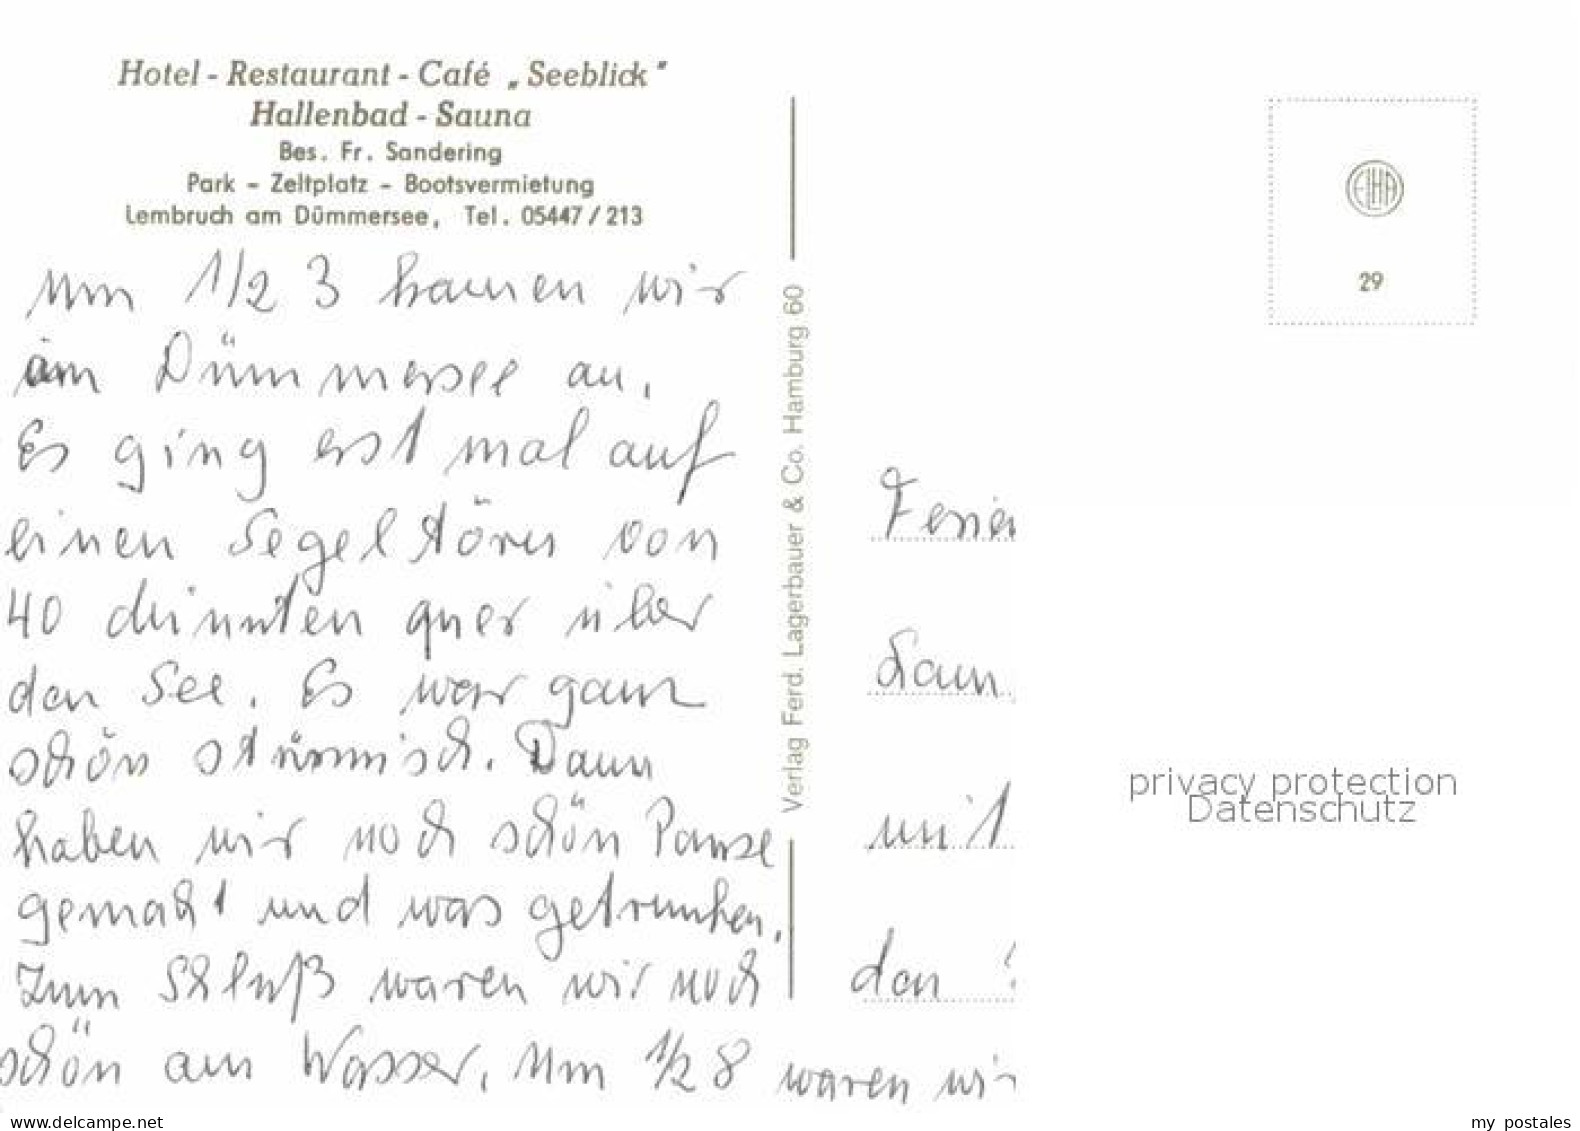 Hotel - Restaurant - Café „Seeblick"
Hallenbad - Sauna
Bes. Fr. Sandering
Park - Zeltplatz - Bootsvermietung
Lembruch am Dümmersee, Tel. 05447/213
Um 1/2 3 kamen wir
am Dümmersee an.
Es ging erst mal auf
einen Segeltörn von
40 Minuten quer über
den See. Es war ganz
schön stürmisch. Dann
haben wir noch schön Pause
gemacht und was getrunken.
Zum Schluß waren wir noch
schön am Wasser. Um 1/2 8 waren wir
Verlag Ferd. Lagerbauer & Co. Hamburg 60
EILHA
29
Ferien
mit
den
privacy protection
Datenschutz
oldthing.de
my postales